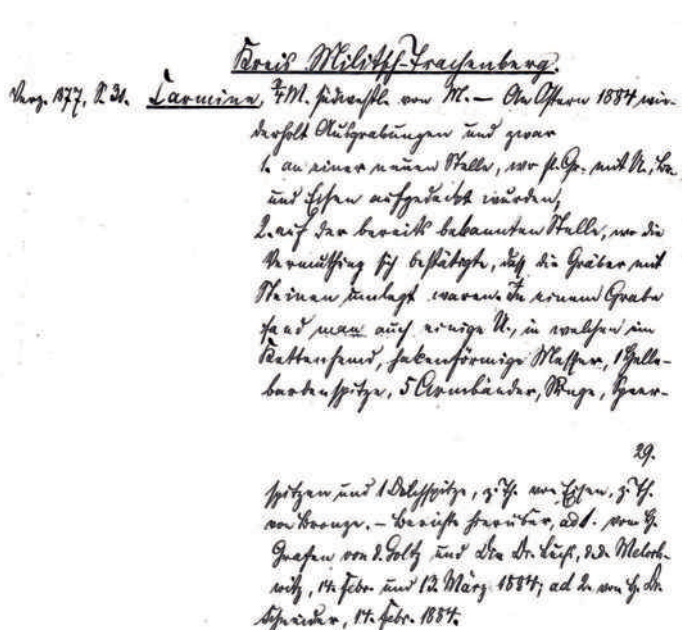 Kreis Militsch-Trachenberg.
Verz. 1877, S. 31. Carmine, ¾ M. südwestl. von M. — Um Ostern 1884 wie-
derholt Ausgrabungen und zwar
1. an einer neuen Stelle, wo sl. Gr. mit U., Br.
und Eisen aufgedeckt wurden,
2. auf der bereits bekannten Stelle, wo die
Vermuthung sich bestätigte, daß die Gräber mit
Steinen umlegt waren. In einem Grabe
fand man auch einige U., in welchen ein
Kettenhemd, hakenförmige Messer, 1 Helle-
bardenspitze, 5 Armbänder, Ringe, Speer-
29.
spitzen und 1 Dolchspitze, z. Th. von Eisen, z. Th.
von Bronze. — Berichte hierüber, ad 1. vom H.
Grafen von d. Goltz und Dr. Luchs, d. d.
14. Febr. und 13. März 1884; ad 2. von H. Dr.
Schneider, 14. Febr. 1884.